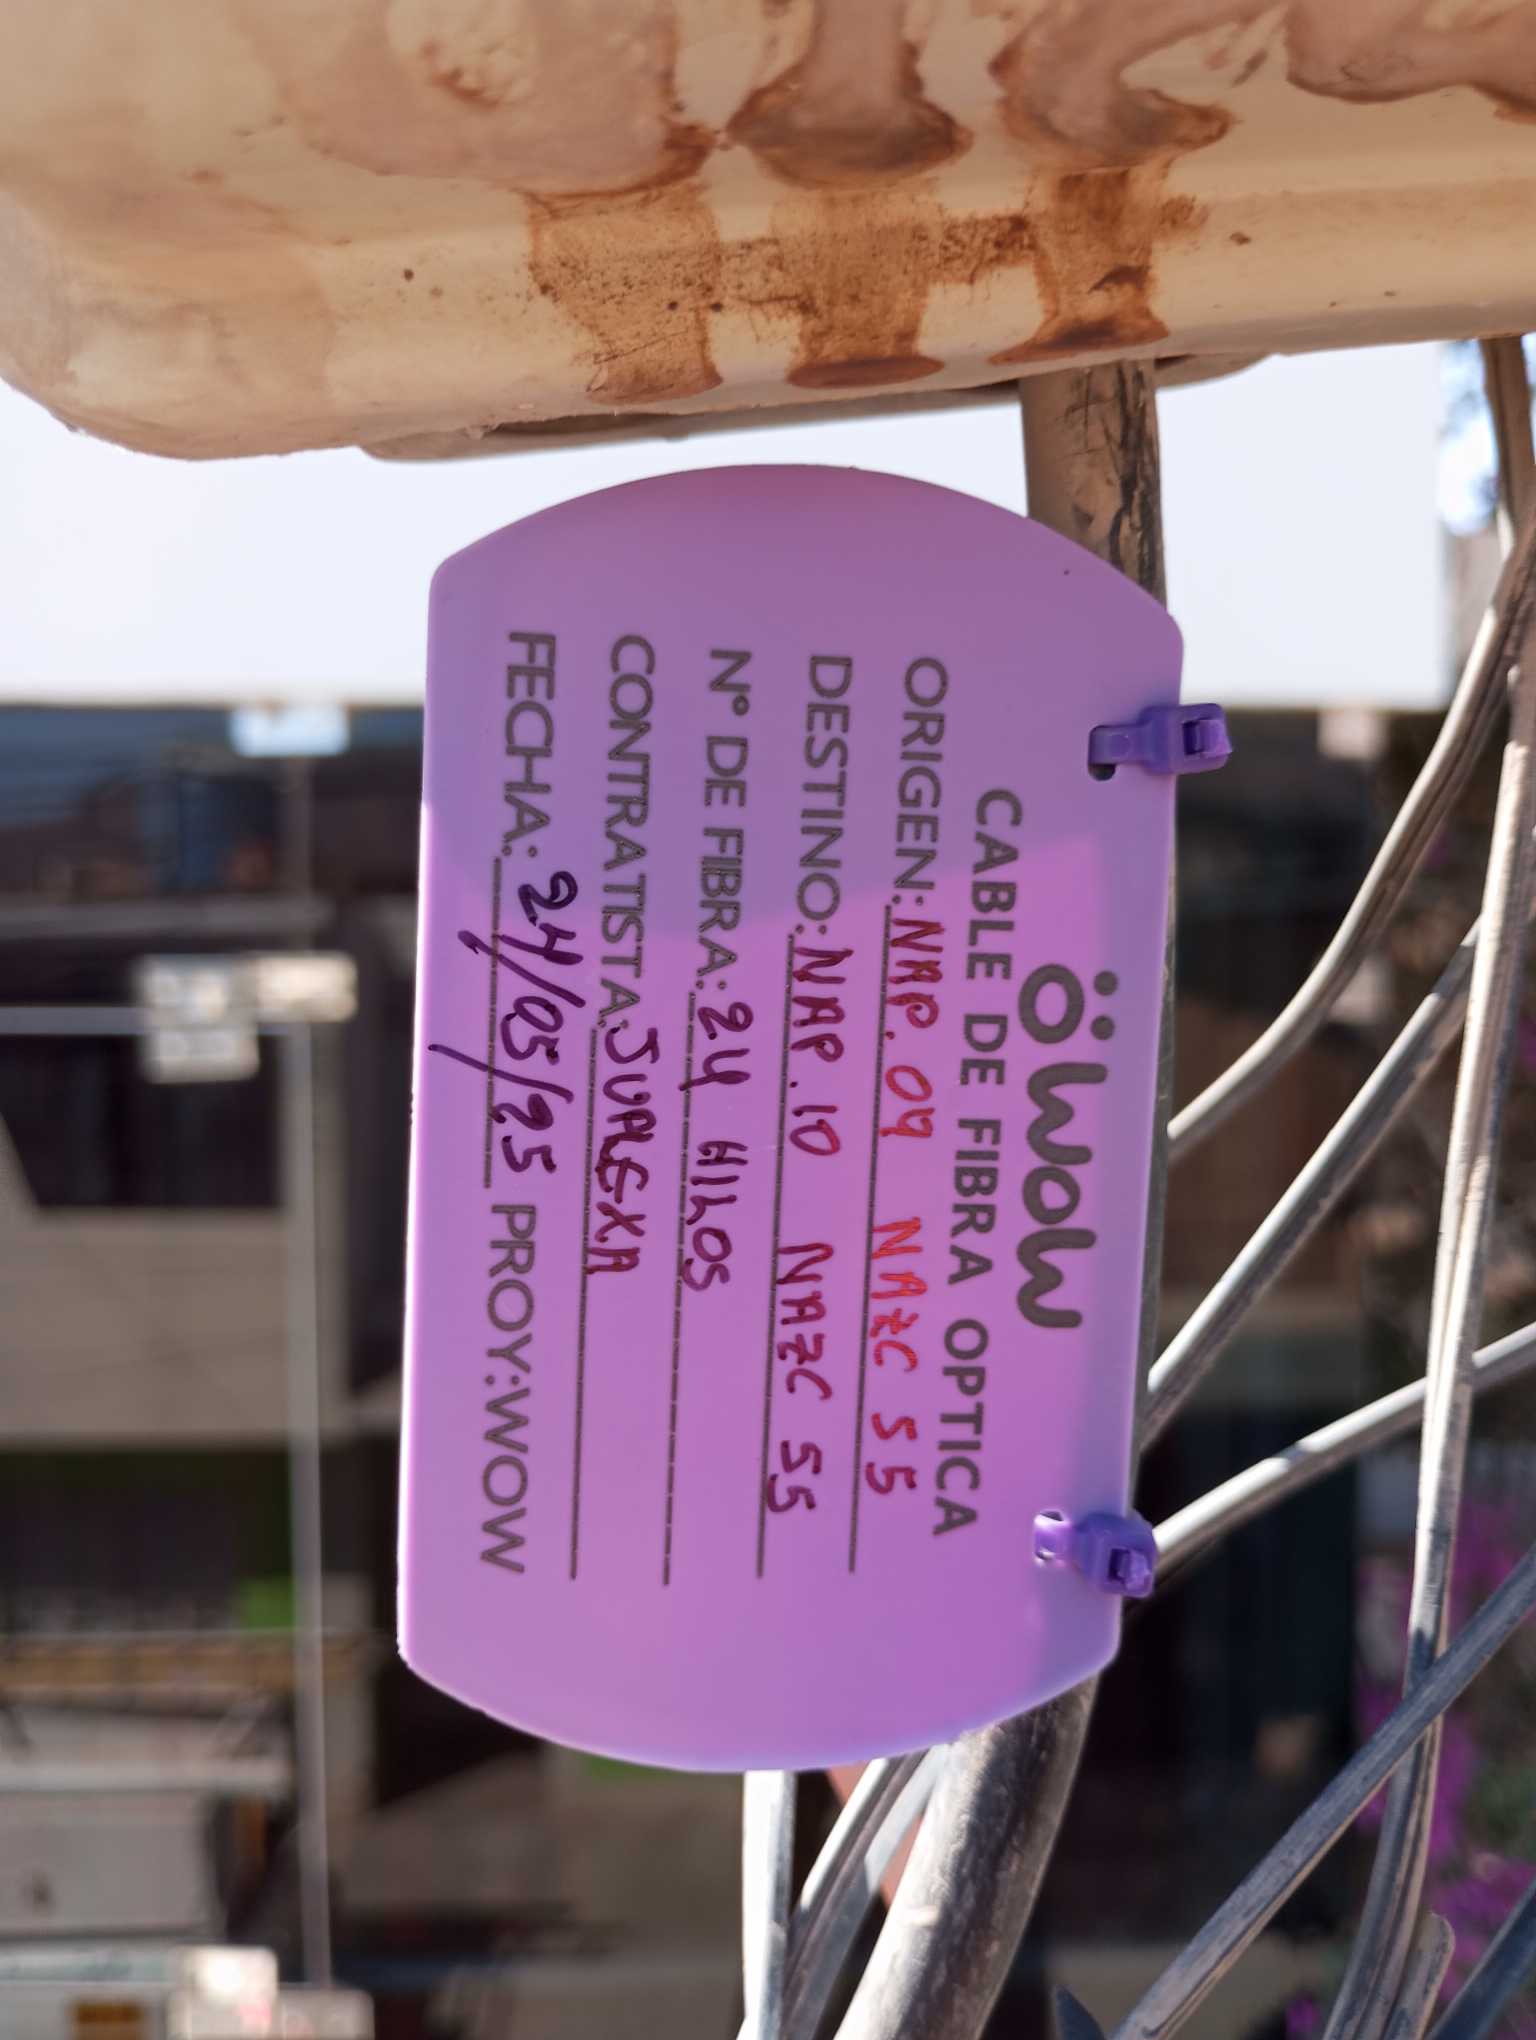 wow
CABLE DE FIBRA OPTICA
ORIGEN: NAP. 09 NAZC 55
DESTINO: NAP. 10 NAZC 55
N° DE FIBRA: 24 HILOS
CONTRATISTA: JUALEXA
FECHA: 24/05/25 PROY: WOW